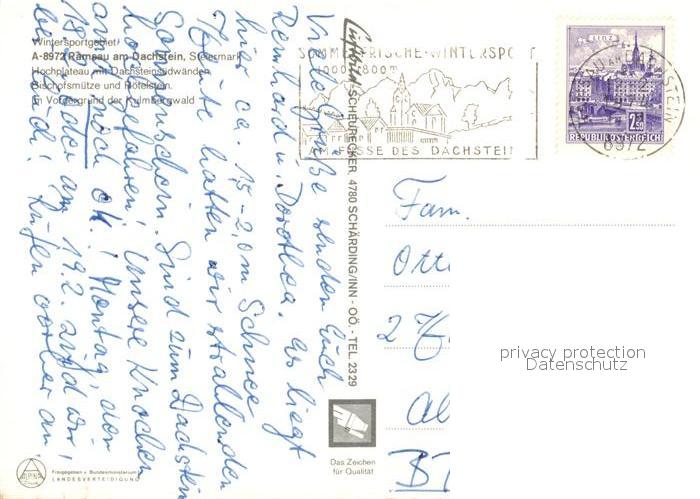 Wintersportgebiet
A-8972 Ramsau am Dachstein, Steiermark
Hochplateau mit Dachsteinsüdwänden
Bischofsmütze und Rötelstein.
Im Vordergrund der Kulmbergwald
Viele Grüße senden Euch
Reinhard u. Dorothea. Es liegt
hier ca 1,5-2,0m Schnee.
Heute hatten wir strahlenden
Sonnenschein. Sind zum Dachstein
hochgefahren. Unsere Knochen
sind noch ok.! Montag, den
18. oder am 19.2. sind wir
Rufen vorher an!
Luftbild-SCHEURECKER, 4780 SCHÄRDING/INN - OÖ. - TEL. 2329
SOMMERFRISCHE-WINTERSPORT
AM FUSSE DES DACHSTEIN
LINZ
2.50
REPUBLIK ÖSTERREICH
8972
Fam.
Ott
privacy protection
Datenschutz
Das Zeichen
für Qualität
ALPINA
Freigegeben v. Bundesministerium f.
LANDESVERTEIDIGUNG